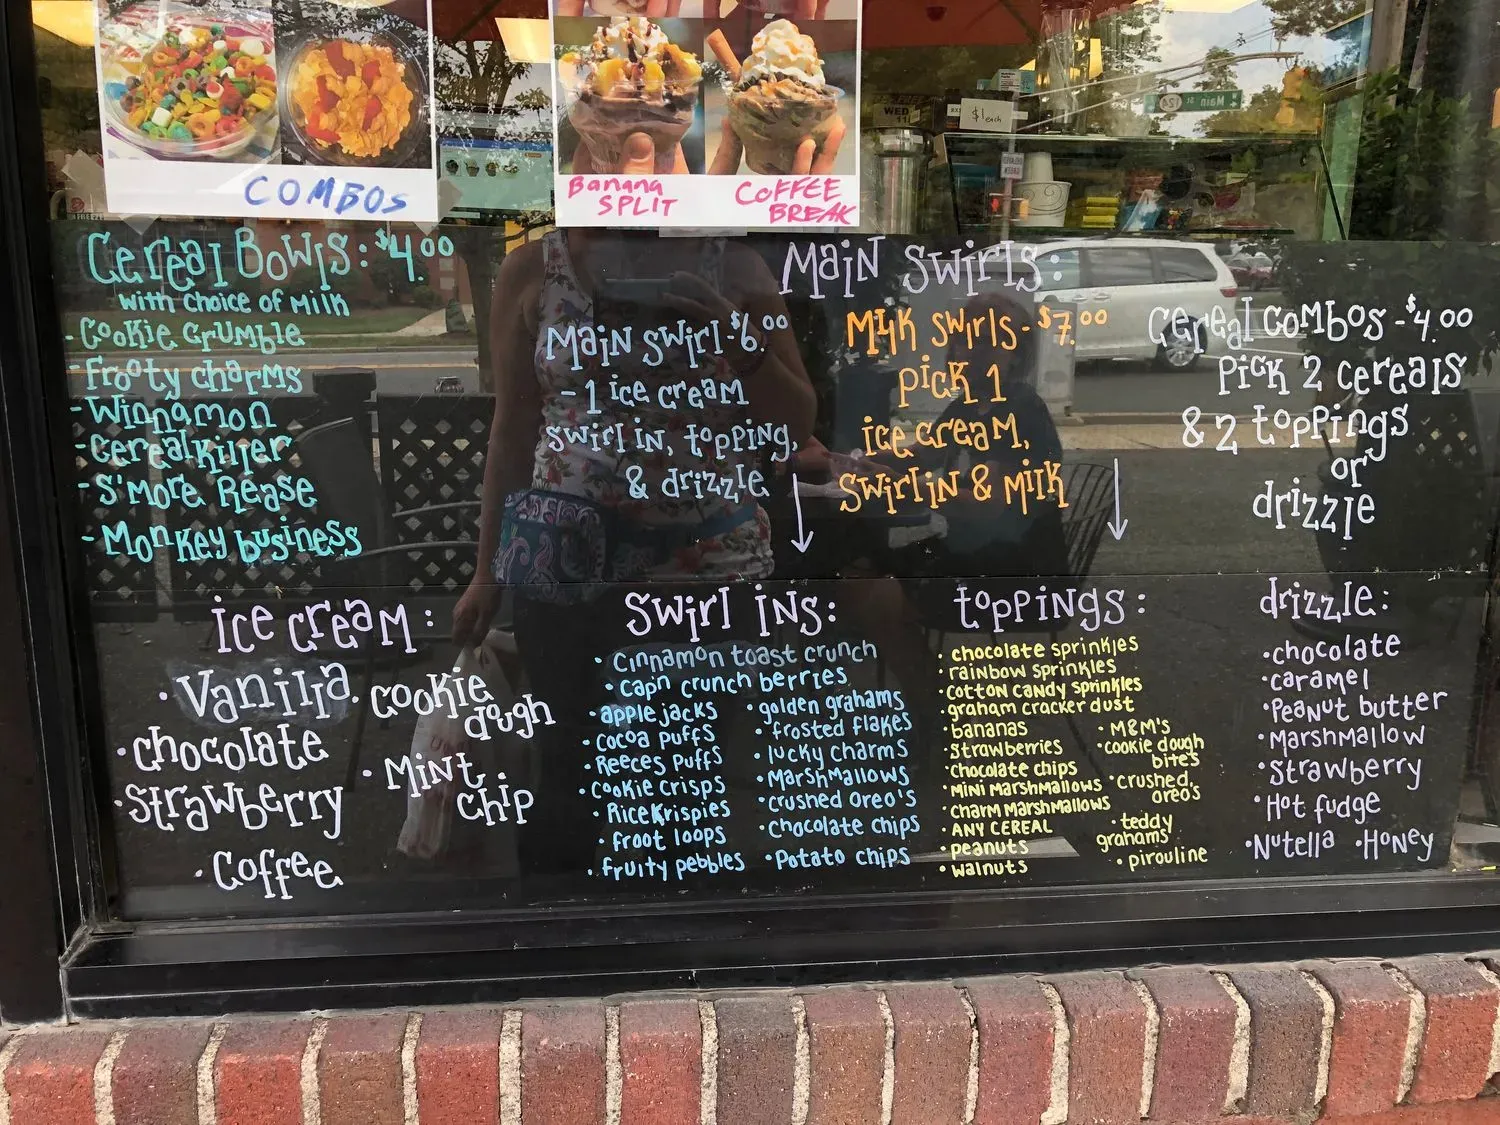 COMBOS
Banana
SPLIT
COFFEE
BREAK
WED
$1 each
Main St
124
Cereal Bowls: $4.00
with choice of milk
- Cookie Crumble
- Frooty charms
- Winnamon
- Cereal Killer
- S'more Rease
- Monkey business
Main Swirls:
Main Swirl - $6.00
- 1 ice cream
swirl in, topping,
& drizzle
Milk Swirls - $7.00
Pick 1
ice cream,
Swirl in & milk
Cereal Combos - $4.00
Pick 2 cereals
& 2 toppings
or
drizzle
ice cream:
• Vanilla
• chocolate
• Strawberry
• Coffee
• cookie
dough
• Mint
chip
Swirl ins:
• Cinnamon toast crunch
• cap'n crunch berries
• apple jacks
• Cocoa Puffs
• Reeces Puffs
• Cookie crisps
• Rice Krispies
• froot loops
• fruity pebbles
• golden grahams
• frosted flakes
• lucky charms
• Marshmallows
• crushed oreo's
• Chocolate chips
• Potato chips
toppings:
• chocolate sprinkles
• rainbow sprinkles
• cotton candy sprinkles
• graham cracker dust
• bananas
• strawberries
• chocolate chips
• mini marshmallows
• charm marshmallows
• ANY CEREAL
• peanuts
• walnuts
• M&M's
• cookie dough
bite's
• crushed
oreo's
• teddy
grahams
• pirouline
drizzle:
• chocolate
• caramel
• Peanut butter
• Marshmallow
• Strawberry
• Hot fudge
• Nutella • Honey